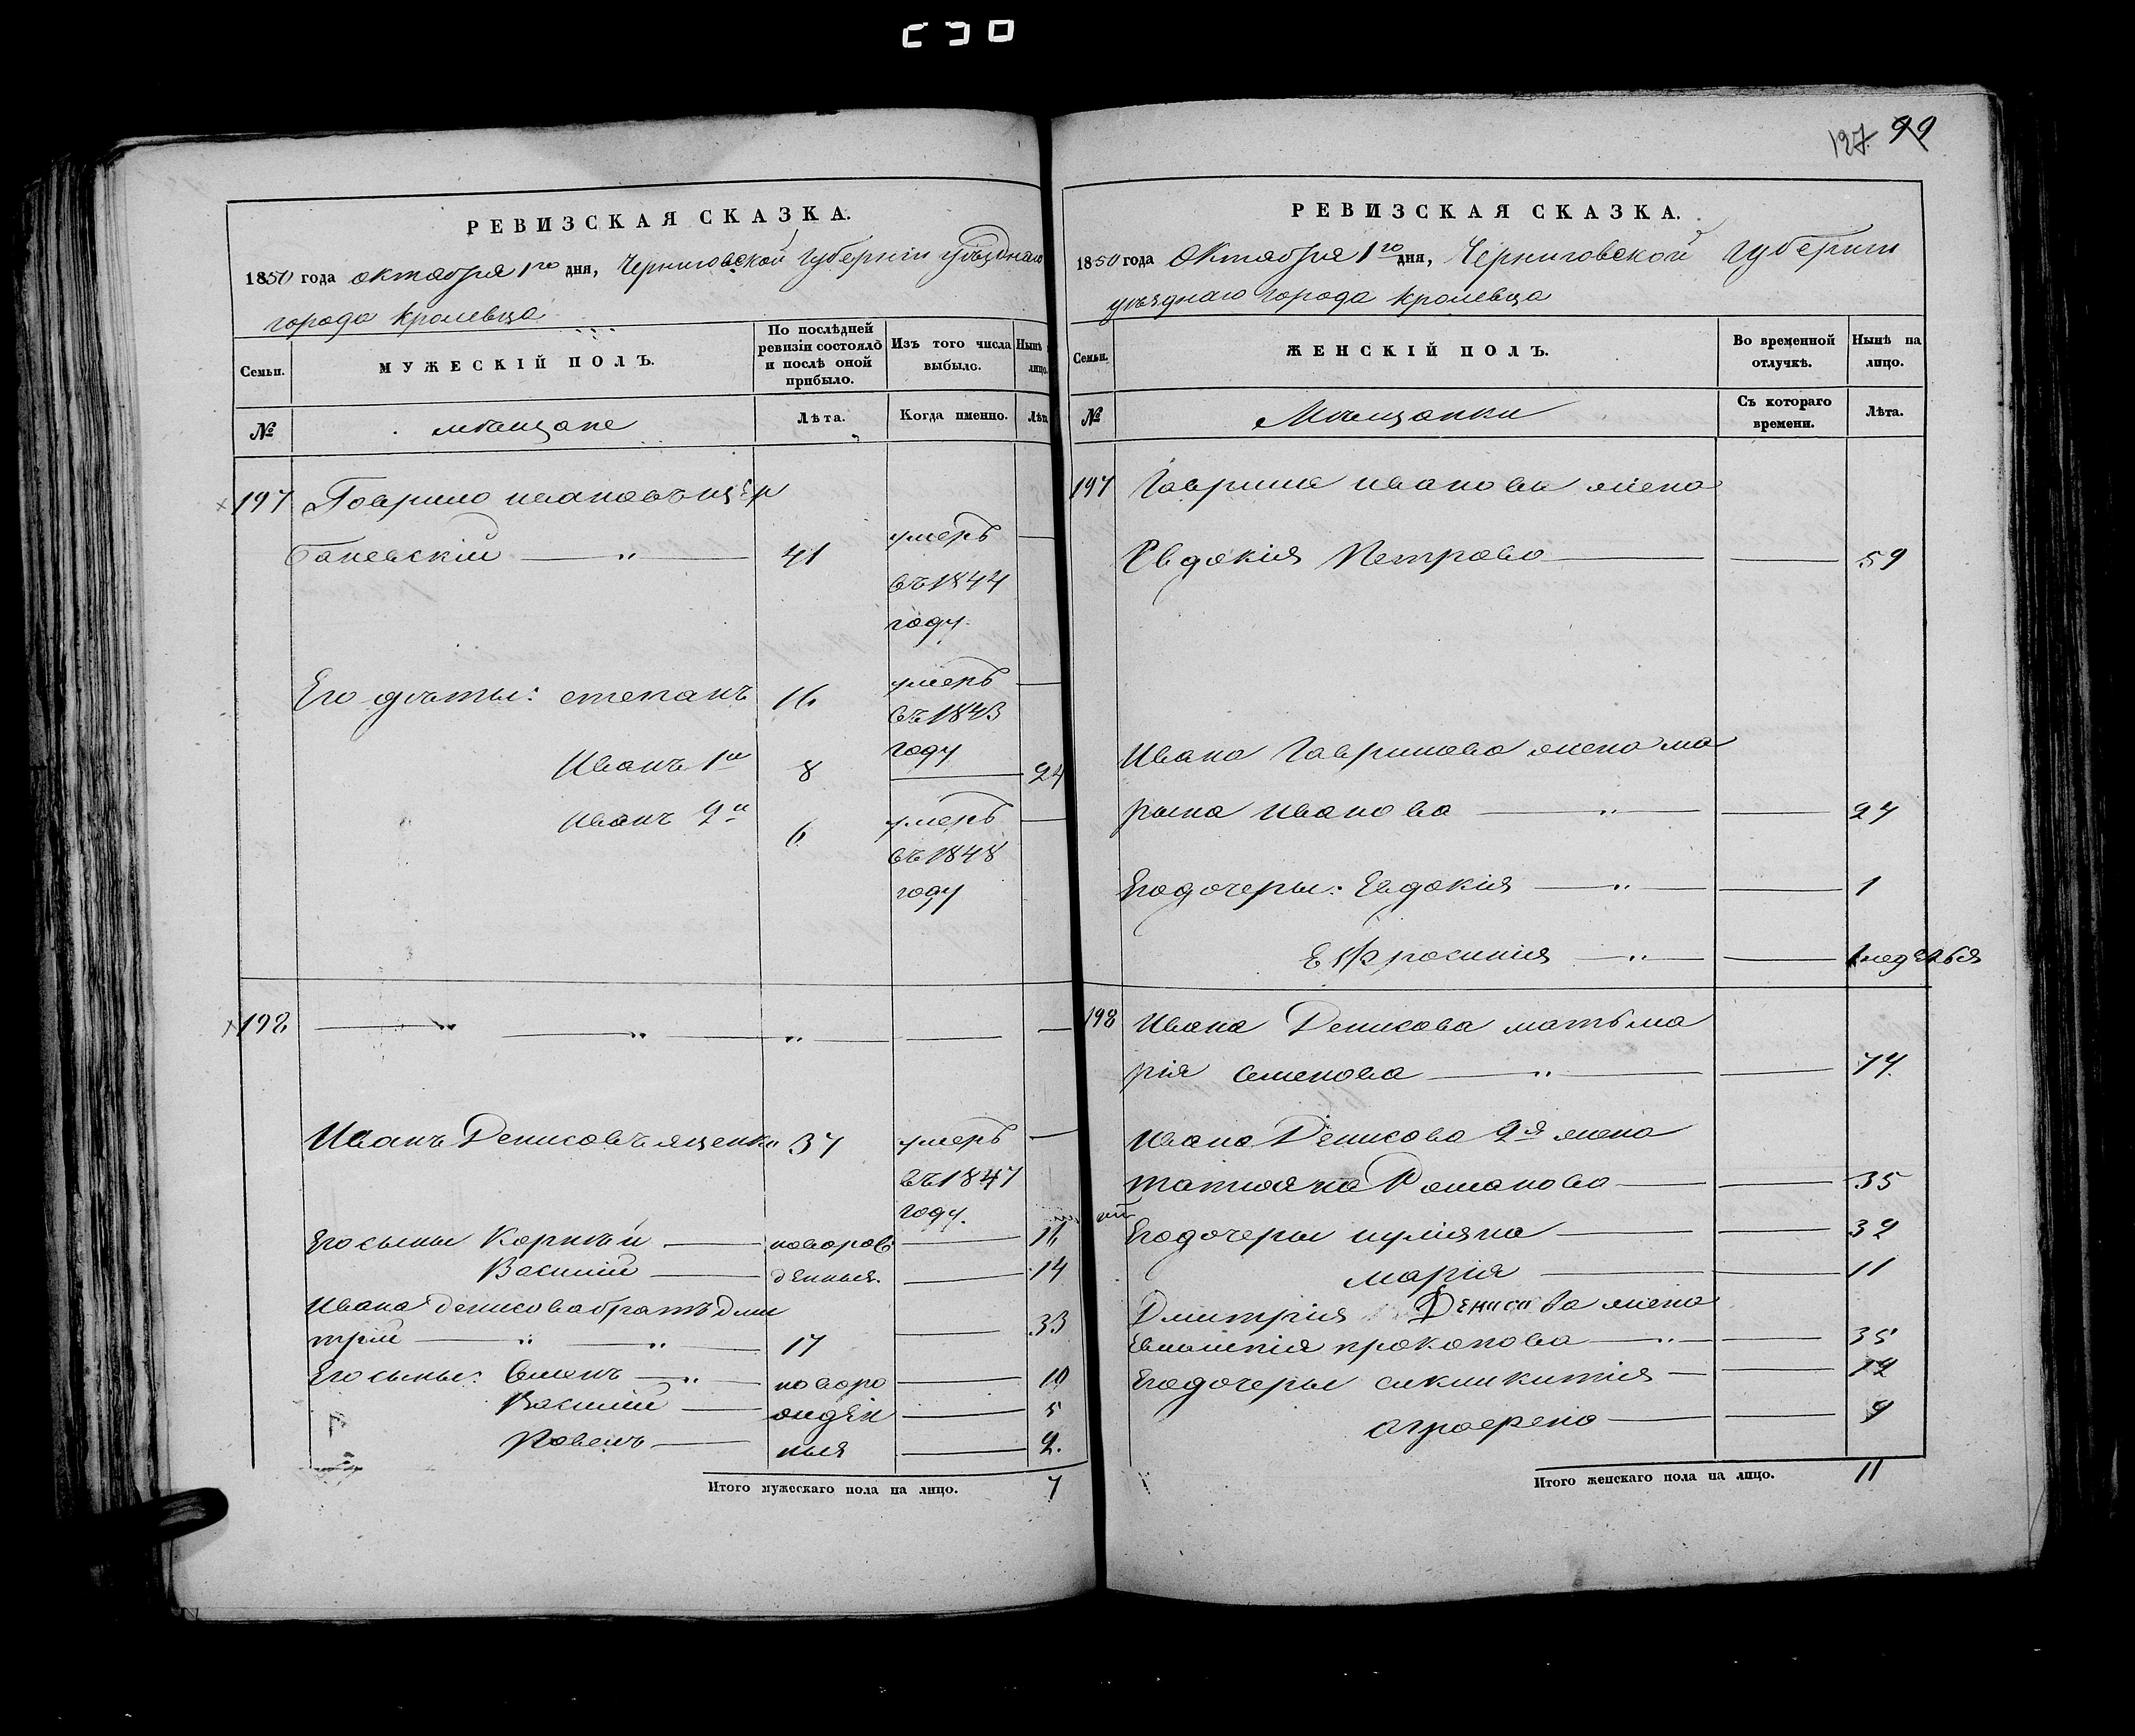 127. 99
РЕВИЗСКАЯ СКАЗКА.
1850 года октября 1го дня, Черниговской губернии уѣзднаго
города Кролевца
Семьи.
МУЖЕСКІЙ ПОЛЪ.
По послѣдней ревизіи состояло и послѣ оной прибыло.
Изъ того числа выбыло.
Нынѣ лицо.
№
мѣщане
Лѣта.
Когда именно.
Лѣт
197 Гаврило ивановъ
баневскій — " — 41 умеръ —
въ 1844
году.
Его дѣти: степанъ 16 умеръ —
въ 1843
году
Иванъ 1й 8 — 24
иванъ 2й 6 умеръ —
въ 1848
году
198 — " — " — " — — —
Иванъ Денисовъ яценко 37 умеръ —
въ 1847
году.
Его сыны Корнѣй — новорож — 16
Василій — денныя. — 14
Ивана денисова братъ дми
трій — " — " — 17 — 33
Его сыны: Семенъ — " новоро — 10
Василій — жден — 5
Павелъ — ныя — 2.
Итого мужескаго пола на лицо. 7
РЕВИЗСКАЯ СКАЗКА.
1850 года Октября 1го дня, Черниговской губернии
уѣзднаго города Кролевца
Семьи.
ЖЕНСКІЙ ПОЛЪ.
Во временной отлучкѣ.
Нынѣ на лицо.
№
Мѣщанки
Съ котораго времени.
Лѣта.
197 Гаврила иванова жена
Евдокія Петрова — — 59
Ивана Гаврилова жена ма
рына иванова — " — — 24
Его дочеры: Евдокія — " — — 1
Ефросинія — " — — 1 неделья
198 Ивана Денисова мать ма
рія семенова — " — — 74
Ивана Денисова 2я жена
татияна Романова — — 35
Его дочеры — — 32
марія — — 11
Дмитрія Денисова жена
прокопова — " — — 35
Его дочеры — — 12
— — 9
Итого женскаго пола на лицо. 11